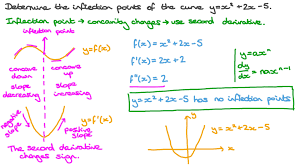 Determine the inflection points of the curve y=x²+2x-5.
Inflection point → concavity changes → use second derivative.
inflection points
y=f(x)
concave down
concave up
slope decreasing
slope increasing
y=f'(x)
negative slope
positive slope
The second derivative changes sign.
f(x)=x²+2x-5
f'(x)=2x+2
f''(x)=2
y=axⁿ
dy/dx=naxⁿ⁻¹
y=x²+2x-5 has no inflection points
y
y=x²+2x-5
x